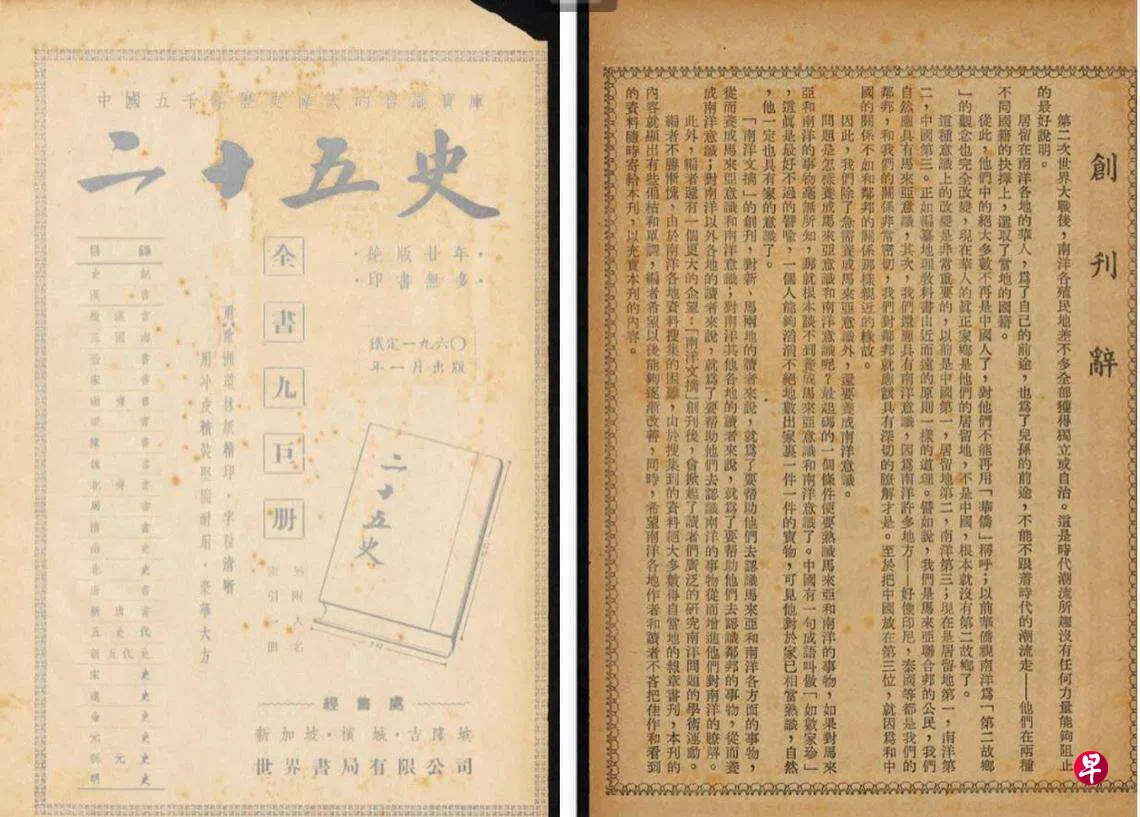 中國五千年歷史偉大的智識寶庫
二十五史
全書九巨册
絕版廿年
印書無多
鐵定一九六〇
年一月出版
目錄
史記
漢書
後漢書
三國志
晉書
宋書
南齊書
梁書
陳書
魏書
北齊書
周書
隋書
南史
北史
舊唐書
新唐書
舊五代史
新五代史
宋史
遼史
金史
元史
新元史
明史
用歐洲道林紙精印，字跡清晰
用沖皮精裝堅固耐用，美華大方
二十五史
另附人名
索引一冊
經售處
新加坡·檳城·吉隆坡
世界書局有限公司
創刊辭
第二次世界大戰後，南洋各殖民地差不多全部獲得獨立或自治。這是時代潮流所趨沒有任何力量能夠阻止
的最好說明。
居留在南洋各地的華人，爲了自己的前途，也爲了兒孫的前途，不能不跟着時代的潮流走——他們在兩種
不同國籍的抉擇上，選取了當地的國籍。
從此，他們中的絕大多數不再是中國人了，對他們不能再用「華僑」稱呼；以前華僑視南洋爲「第二故鄉
」的觀念也完全改變，現在華人的眞正家鄉是他們的居留地，不是中國，根本就沒有第二故鄉了。
這種意識上的改變是非常重要的，以前是中國第一，居留地第二，南洋第三；現在是居留地第一，南洋第
二，中國第三。正如編纂地理教科書由近而遠的原則一樣的道理。譬如說，我們是馬來亞聯合邦的公民，我們
自然應具有馬來亞意識，其次，我們還應具有南洋意識，因爲南洋許多地方——好像印尼，泰國等都是我們的
鄰邦，和我們的關係非常密切，我們對鄰邦就應該具有深切的瞭解才是。至於把中國放在第三位，就因爲和中
國的關係不如和鄰邦的關係那樣親近的緣故。
因此，我們除了急需養成馬來亞意識外，還要養成南洋意識。
問題是怎樣養成馬來亞意識和南洋意識呢？最起碼的一個條件便要熟識馬來亞和南洋的事物，如果對馬來
亞和南洋的事物毫無所知，那就根本談不到養成馬來亞意識和南洋意識了。中國有一句成語叫做「如數家珍」
，這眞是最好不過的譬喻，一個人能夠滔滔不絕地數出家裏一件一件的寶物，可見他對於家已相當熟識，自然
，他一定也具有家的意識了。
「南洋文摘」的創刊，對新、馬兩地的讀者來說，就爲了要幫助他們去認識馬來亞和南洋各方面的事物，
從而養成馬來亞意識和南洋意識；對南洋其他各地的讀者來說，就爲了要幫助他們去認識鄰邦的事物，從而養
成南洋意識；對南洋以外各地的讀者來說，就爲了要幫助他們去認識南洋的事物從而增進他們對南洋的瞭解。
此外，編者還有一個更大的企望：「南洋文摘」創刊後，會掀起了讀者們廣泛的研究南洋問題的學術運動。
編者不勝慚愧，由於南洋各地資料搜集的困難，由於搜集到的資料絕大多數得自當地的報章書刊，本刊的
內容就顯出有些偏枯和單調，編者希望以後能夠逐漸改善，同時，希望南洋各地作者和讀者不吝把佳作和看到
的資料隨時寄給本刊，以充實本刊的內容。
早